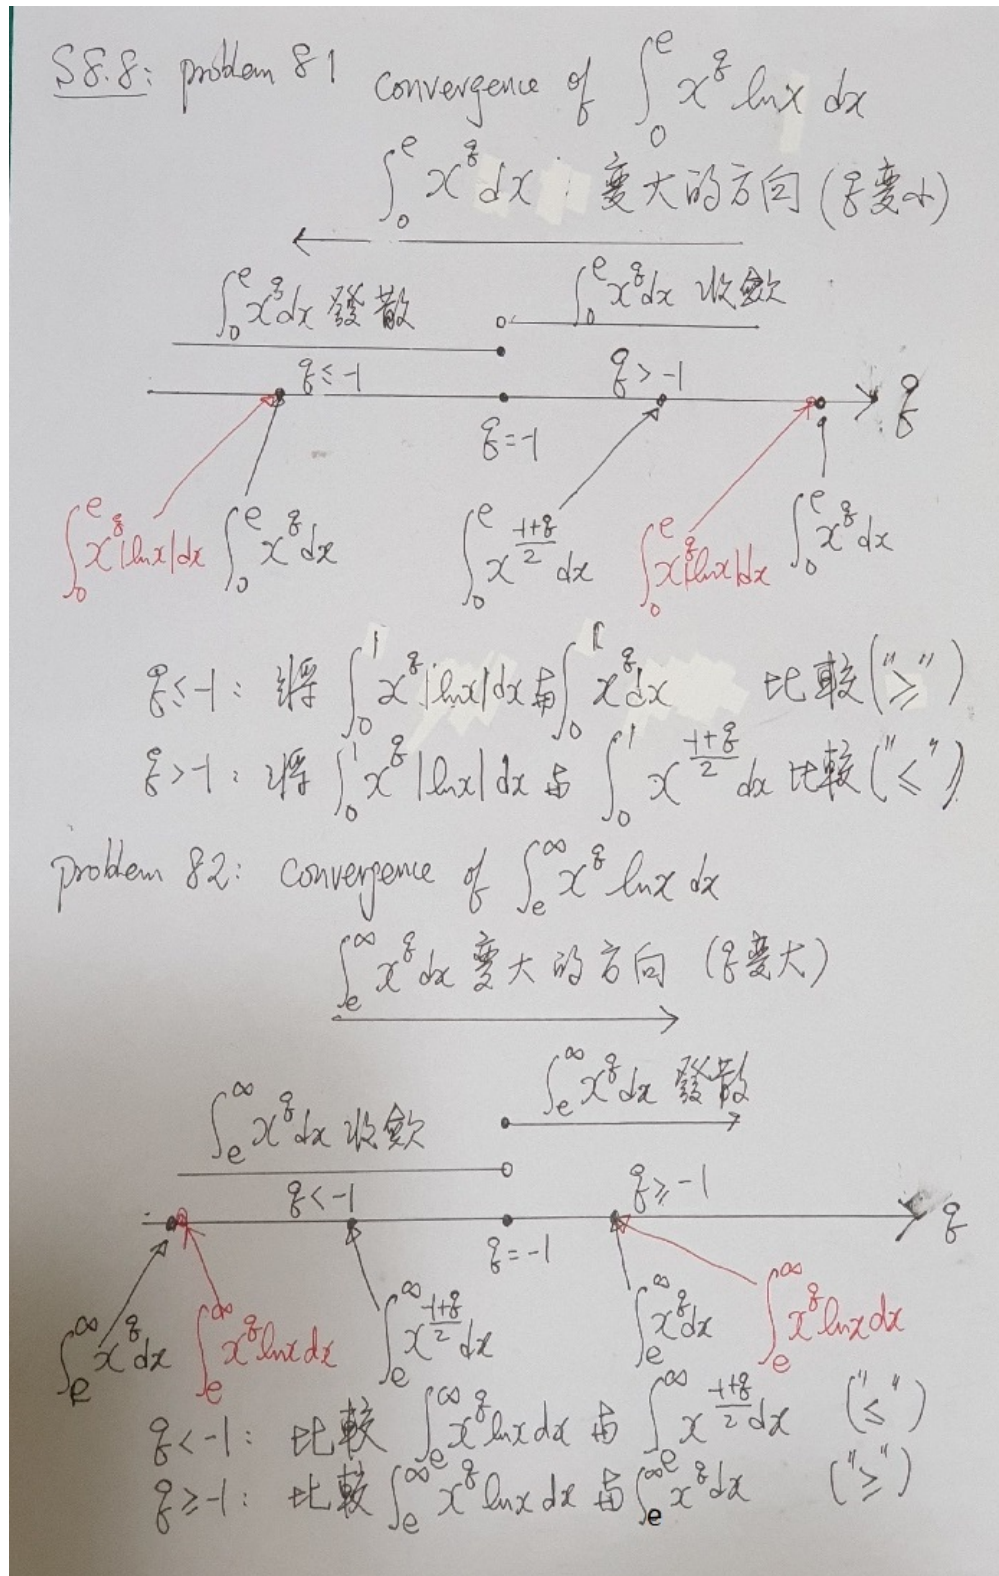 S8.8: problem 81 convergence of ∫₀ᵉ x^q ln x dx
∫₀ᵉ x^q dx : 變大的方向 (q變小)
∫₀ᵉ x^q dx 發散 ∫₀ᵉ x^q dx 收斂
q ≤ -1 q > -1
q
q = -1
∫₀ᵉ x^q |ln x| dx ∫₀ᵉ x^q dx ∫₀ᵉ x^((-1+q)/2) dx ∫₀ᵉ x^q |ln x| dx ∫₀ᵉ x^q dx
q ≤ -1 : 將 ∫₀¹ x^q |ln x| dx 與 ∫₀¹ x^q dx 比較 ("≥")
q > -1 : 將 ∫₀¹ x^q |ln x| dx 與 ∫₀¹ x^((-1+q)/2) dx 比較 ("≤")
problem 82: convergence of ∫ₑ^∞ x^q ln x dx
∫ₑ^∞ x^q dx 變大的方向 (q變大)
∫ₑ^∞ x^q dx 發散
∫ₑ^∞ x^q dx 收斂
q < -1 q ≥ -1
q
q = -1
∫ₑ^∞ x^q dx ∫ₑ^∞ x^q ln x dx ∫ₑ^∞ x^((-1+q)/2) dx ∫ₑ^∞ x^q dx ∫ₑ^∞ x^q ln x dx
q < -1 : 比較 ∫ₑ^∞ x^q ln x dx 與 ∫ₑ^∞ x^((-1+q)/2) dx ("≤")
q ≥ -1 : 比較 ∫ₑ^∞ x^q ln x dx 與 ∫ₑ^∞ x^q dx ("≥")